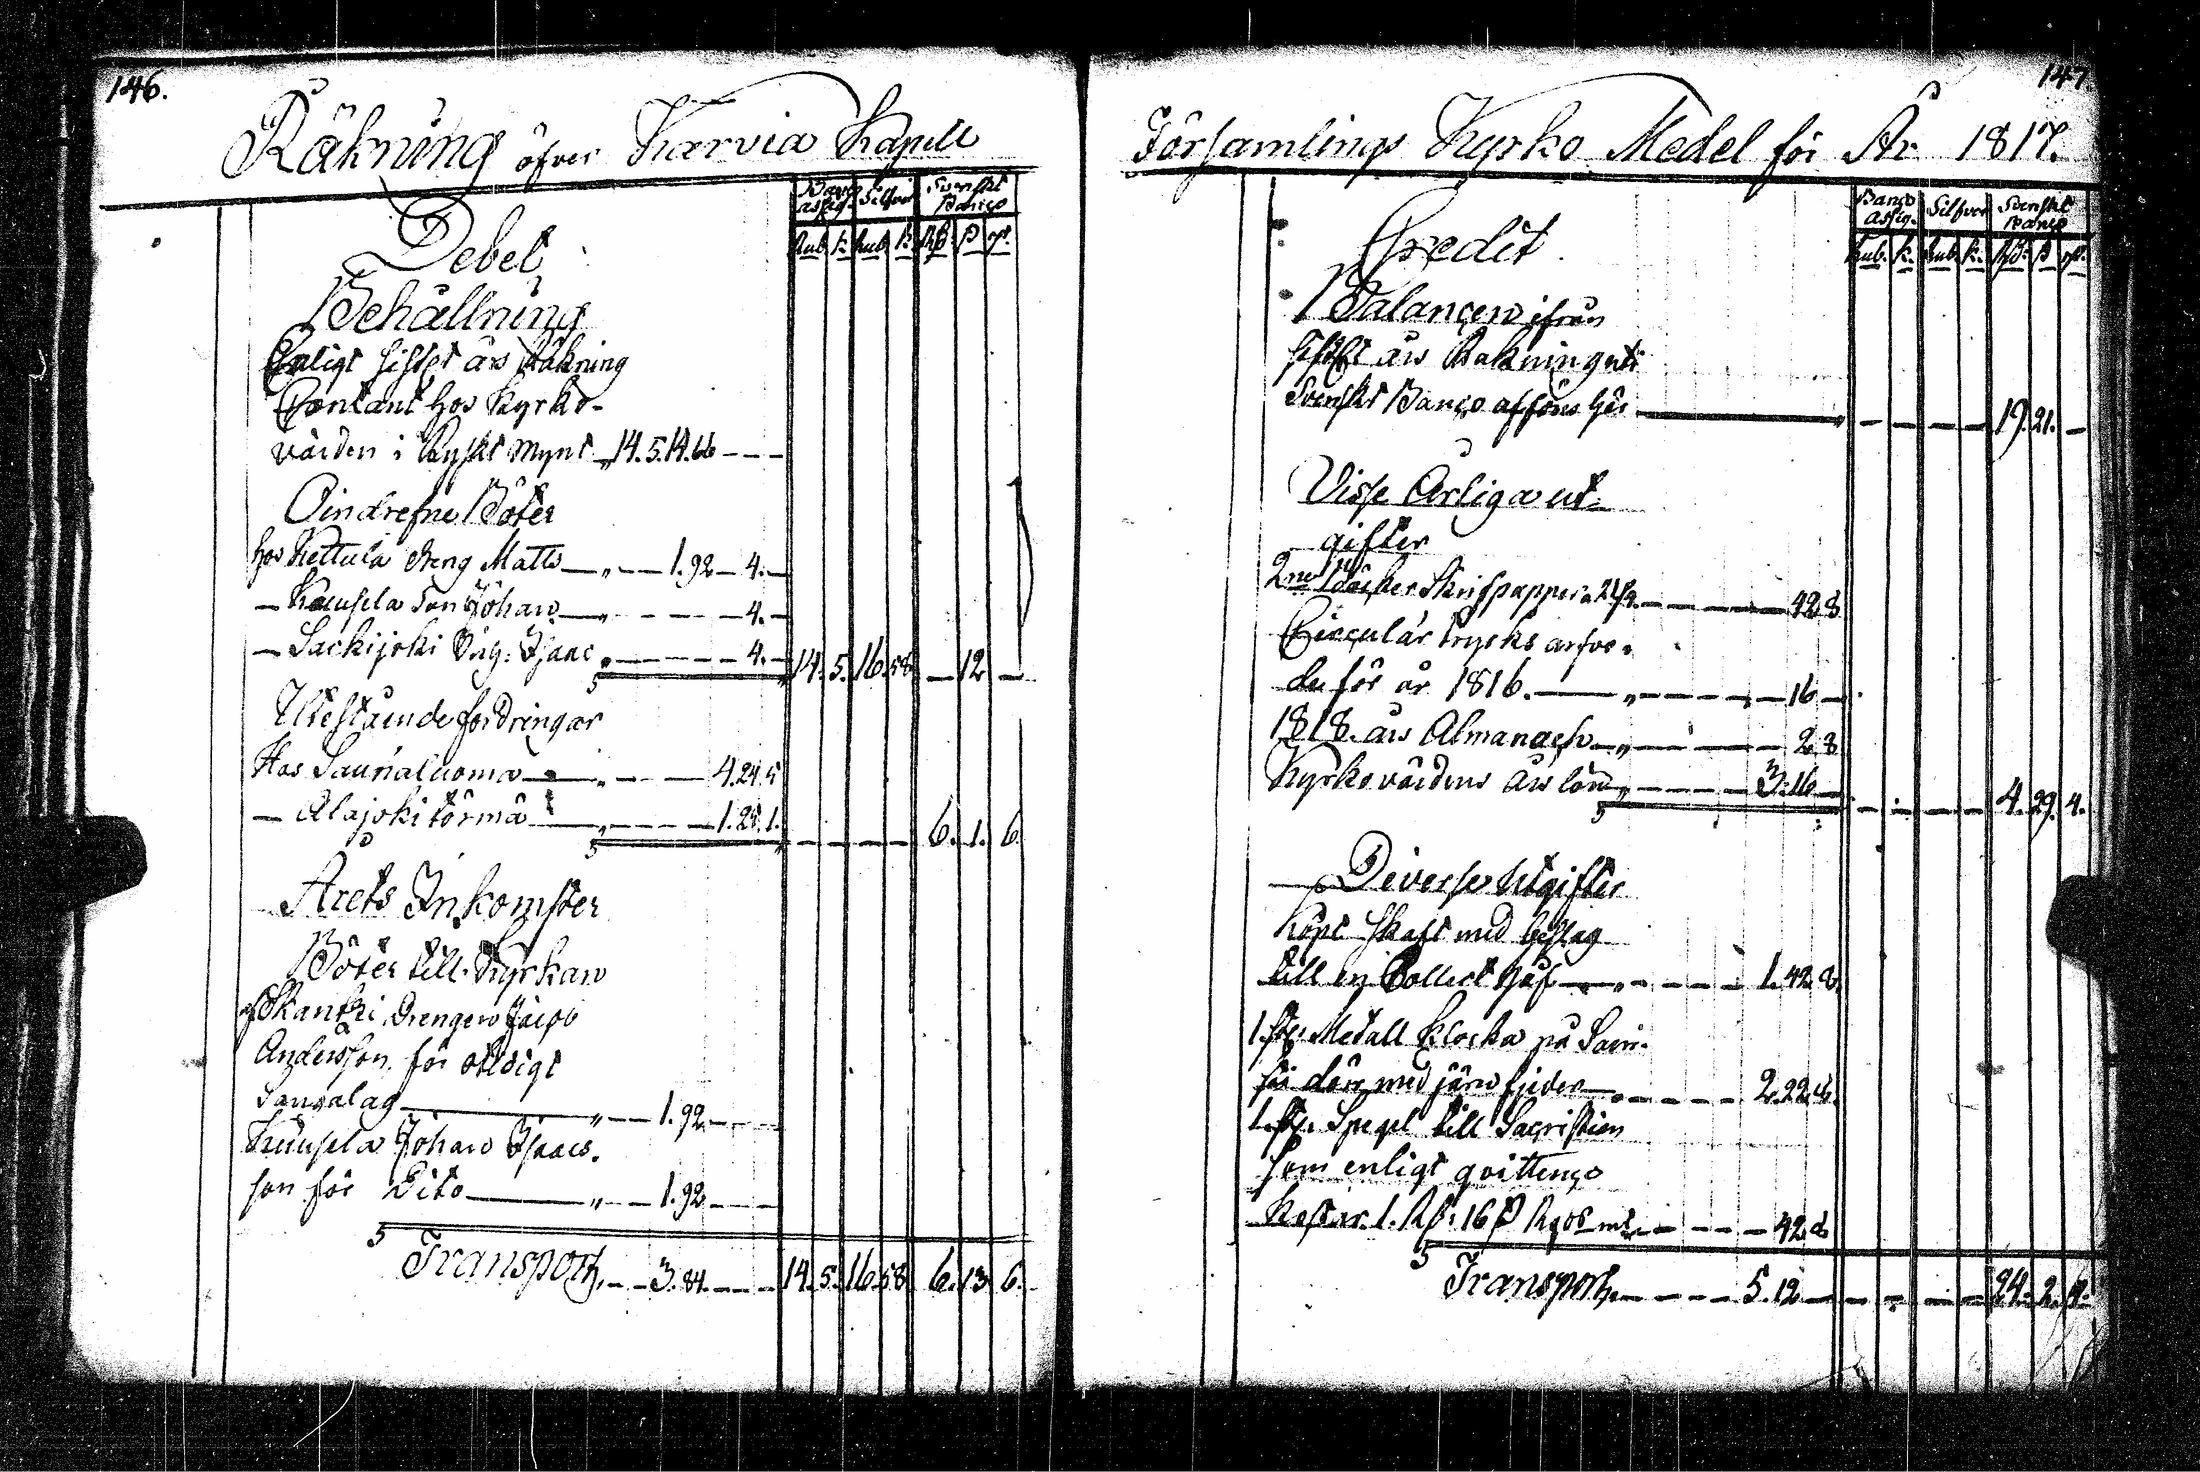 146.
Räkning öfver Karvia Kapell
Banco assig. Silfver Svenskt Banco
Rub. k. Rub. k. Rd. ß rst.
Debet
Behållning
Enligt sistl. års Räkning
Contant hos Kyrko-
värden i Ryskt Mynt „ 14. 5. 14. 66
Oindrefne Böter
hos Kettula Dreng Matts — „ — 1. 92 — 4. —
— Son Johan — „ — 4. —
— Sackijoki Isaac „ — 4. — 14. 5. 16. 58 — 12 —
Utestående fordringar
Hos Saunaluoma — „ — 4. 24. 5
— Alajoki törmä — „ — 1. 25. 1. — — — — 6. 1. 6.
Årets Inkomster
Böter till Kyrkan
af Skantzi Drengen Jacob
Andersson för otidigt
— „ — 1. 92. —
Johan Isaacs-
son för Dito — „ — 1. 92 —
Transport, — 3. 84. — 14. 5. 16. 58 6. 13. 6.
147
Församlings Kyrko Medel för År 1817.
Banco assig. Silfver Svenskt Banco
Rub. k. Rub. k. Rd. ß rst.
Credit
Balancen ifrån
sistl. års Räkning uti
Svenskt Banco afföres här — „ — — — — 19. 21. —
Visse Årliga ut-
gifter
2ne Böcker Skrifpapper a 21/4. — 42. 8
Circulär trycks arfvo-
de för år 1816. — „ — 16 —
1818. års Almanach — „ — 2. 8
Kyrkovärdens års lön „ — 3. 16 — — — — — 4. 29. 4.
Diverse Utgifter
Köpt skaft med beslag
till en Collect håf — „ — 1. 42. 8.
1. st. Metall Klocka på Sacri-
stie dörr med järn fjeder — „ — 2. 22. 8.
1. st. Spegel till Sacristien
som enligt qvittence
kostar 1. Rd. 16 ß Rgds mt. — 42. 8
Transport, — 5. 12 — — — — — 24. 2. 4.